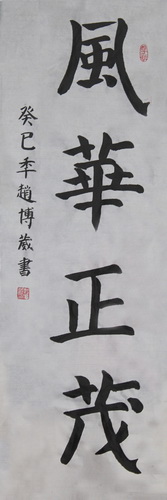 風華正茂
癸巳年趙博葳書